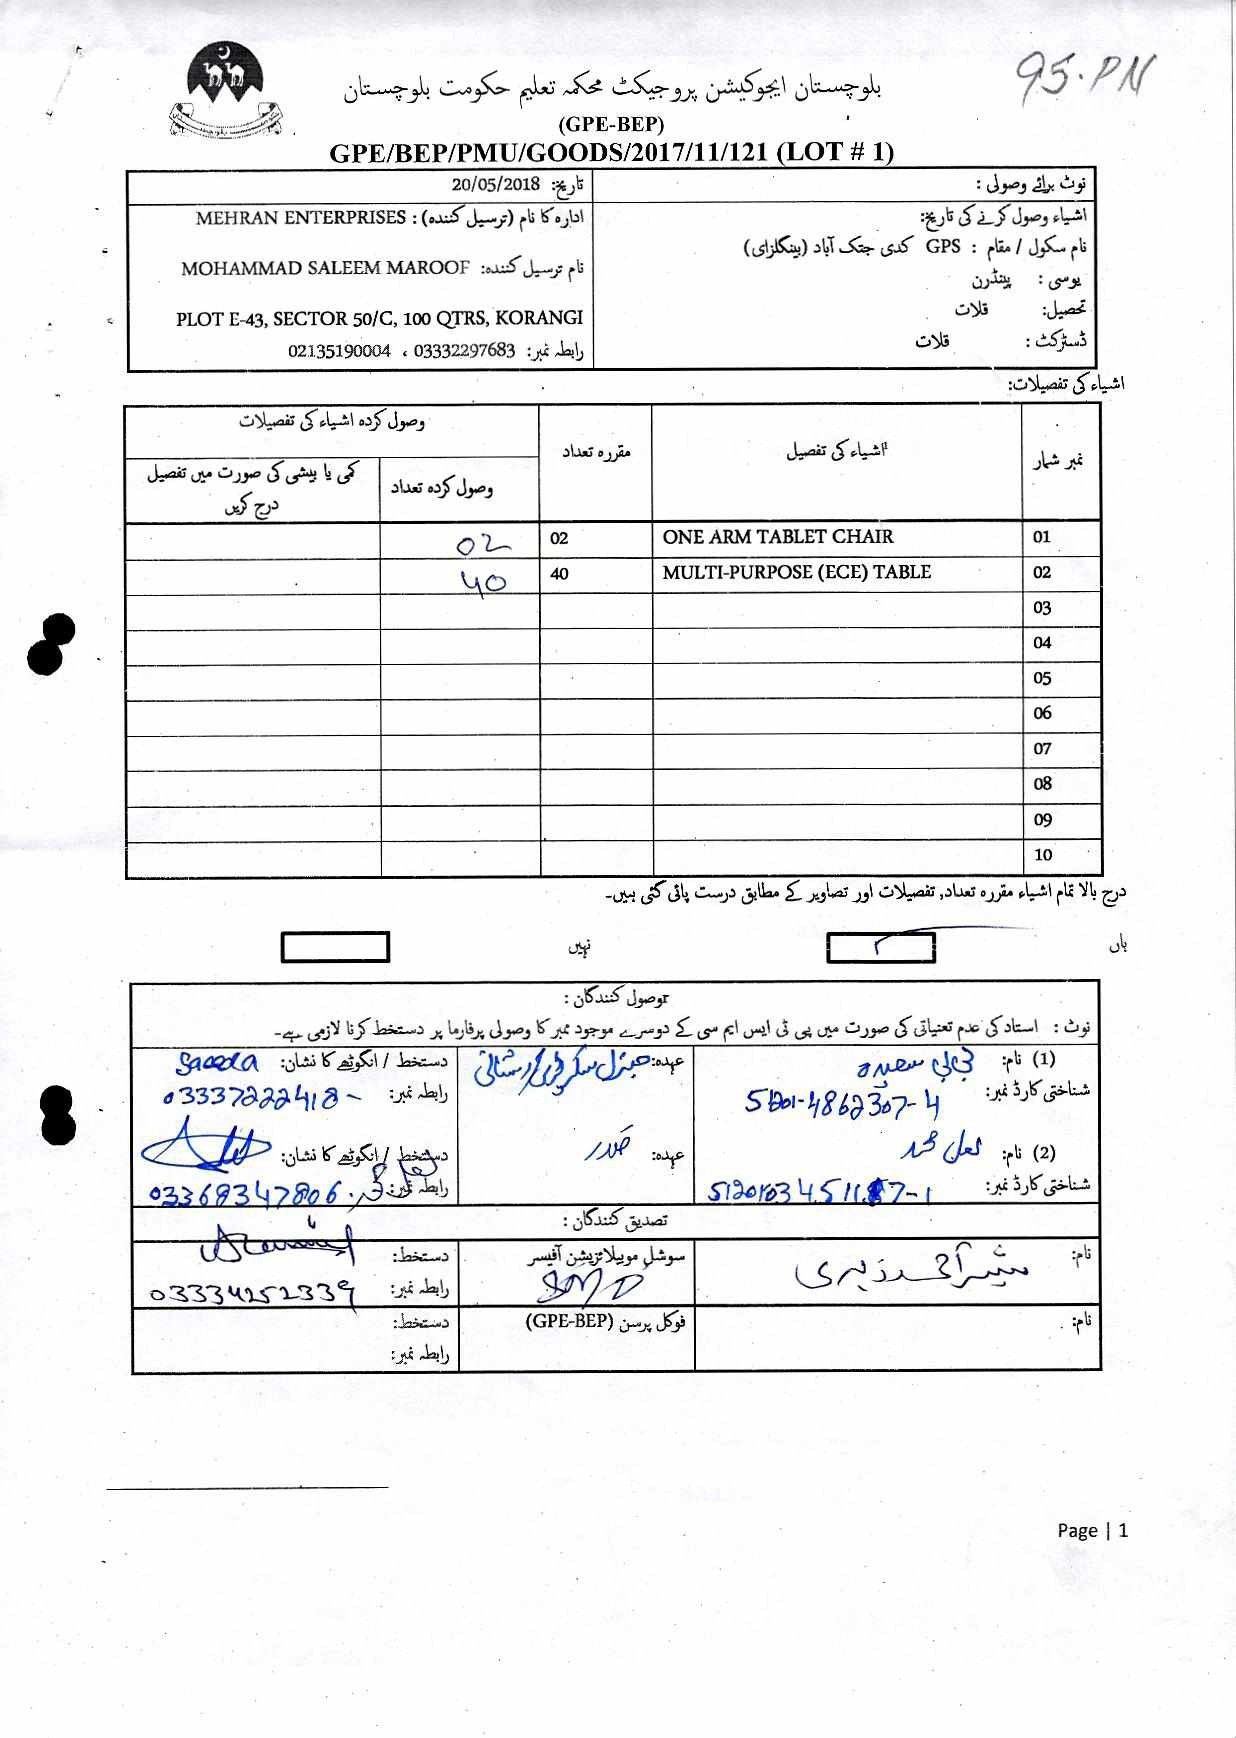 95-PN
بلوچستان ایجوکیشن پروجیکٹ محکمہ تعلیم حکومت بلوچستان
(GPE-BEP)
GPE/BEP/PMU/GOODS/2017/11/121 (LOT # 1)
نوٹ برائے وصولی :
اشیاء وصول کرنے کی تاریخ:
نام سکول / مقام : GPS کلی جتک آباد (بینگلزای)
یوسی : پینڈرن
تحصیل: قلات
ڈسٹرکٹ : قلات
تاریخ: 20/05/2018
ادارہ کا نام (ترسیل کنندہ) : MEHRAN ENTERPRISES
نام ترسیل کنندہ: MOHAMMAD SALEEM MAROOF
PLOT E-43, SECTOR 50/C, 100 QTRS, KORANGI
رابطہ نمبر: 03332297683 ، 02135190004
اشیاء کی تفصیلات:
نمبر شمار اشیاء کی تفصیل مقررہ تعداد وصول کردہ اشیاء کی تفصیلات
وصول کردہ تعداد کمی یا بیشی کی صورت میں تفصیل درج کریں
01 ONE ARM TABLET CHAIR 02 02
02 MULTI-PURPOSE (ECE) TABLE 40 40
03
04
05
06
07
08
09
10
درج بالا تمام اشیاء مقررہ تعداد, تفصیلات اور تصاویر کے مطابق درست پائی گئی ہیں۔
ہاں نہیں
وصول کنندگان :
نوٹ : استاد کی عدم تعنیاتی کی صورت میں پی ٹی ایس ایم سی کے دوسرے موجود ممبر کا وصولی پرفارما پر دستخط کرنا لازمی ہے۔
(1) نام: بی بی سعیدہ عہدہ: جنرل سکرٹری دستخط / انگوٹھے کا نشان: Saeeda
شناختی کارڈ نمبر: 51201-4862307-4 رابطہ نمبر: 03337222418
(2) نام: لعل محمد عہدہ: صدر دستخط / انگوٹھے کا نشان:
شناختی کارڈ نمبر: رابطہ نمبر: 03368347806
تصدیق کنندگان :
نام: سوشل موبیلائزیشن آفیسر دستخط:
SMO رابطہ نمبر: 03334252339
نام: فوکل پرسن (GPE-BEP) دستخط:
رابطہ نمبر:
Page | 1